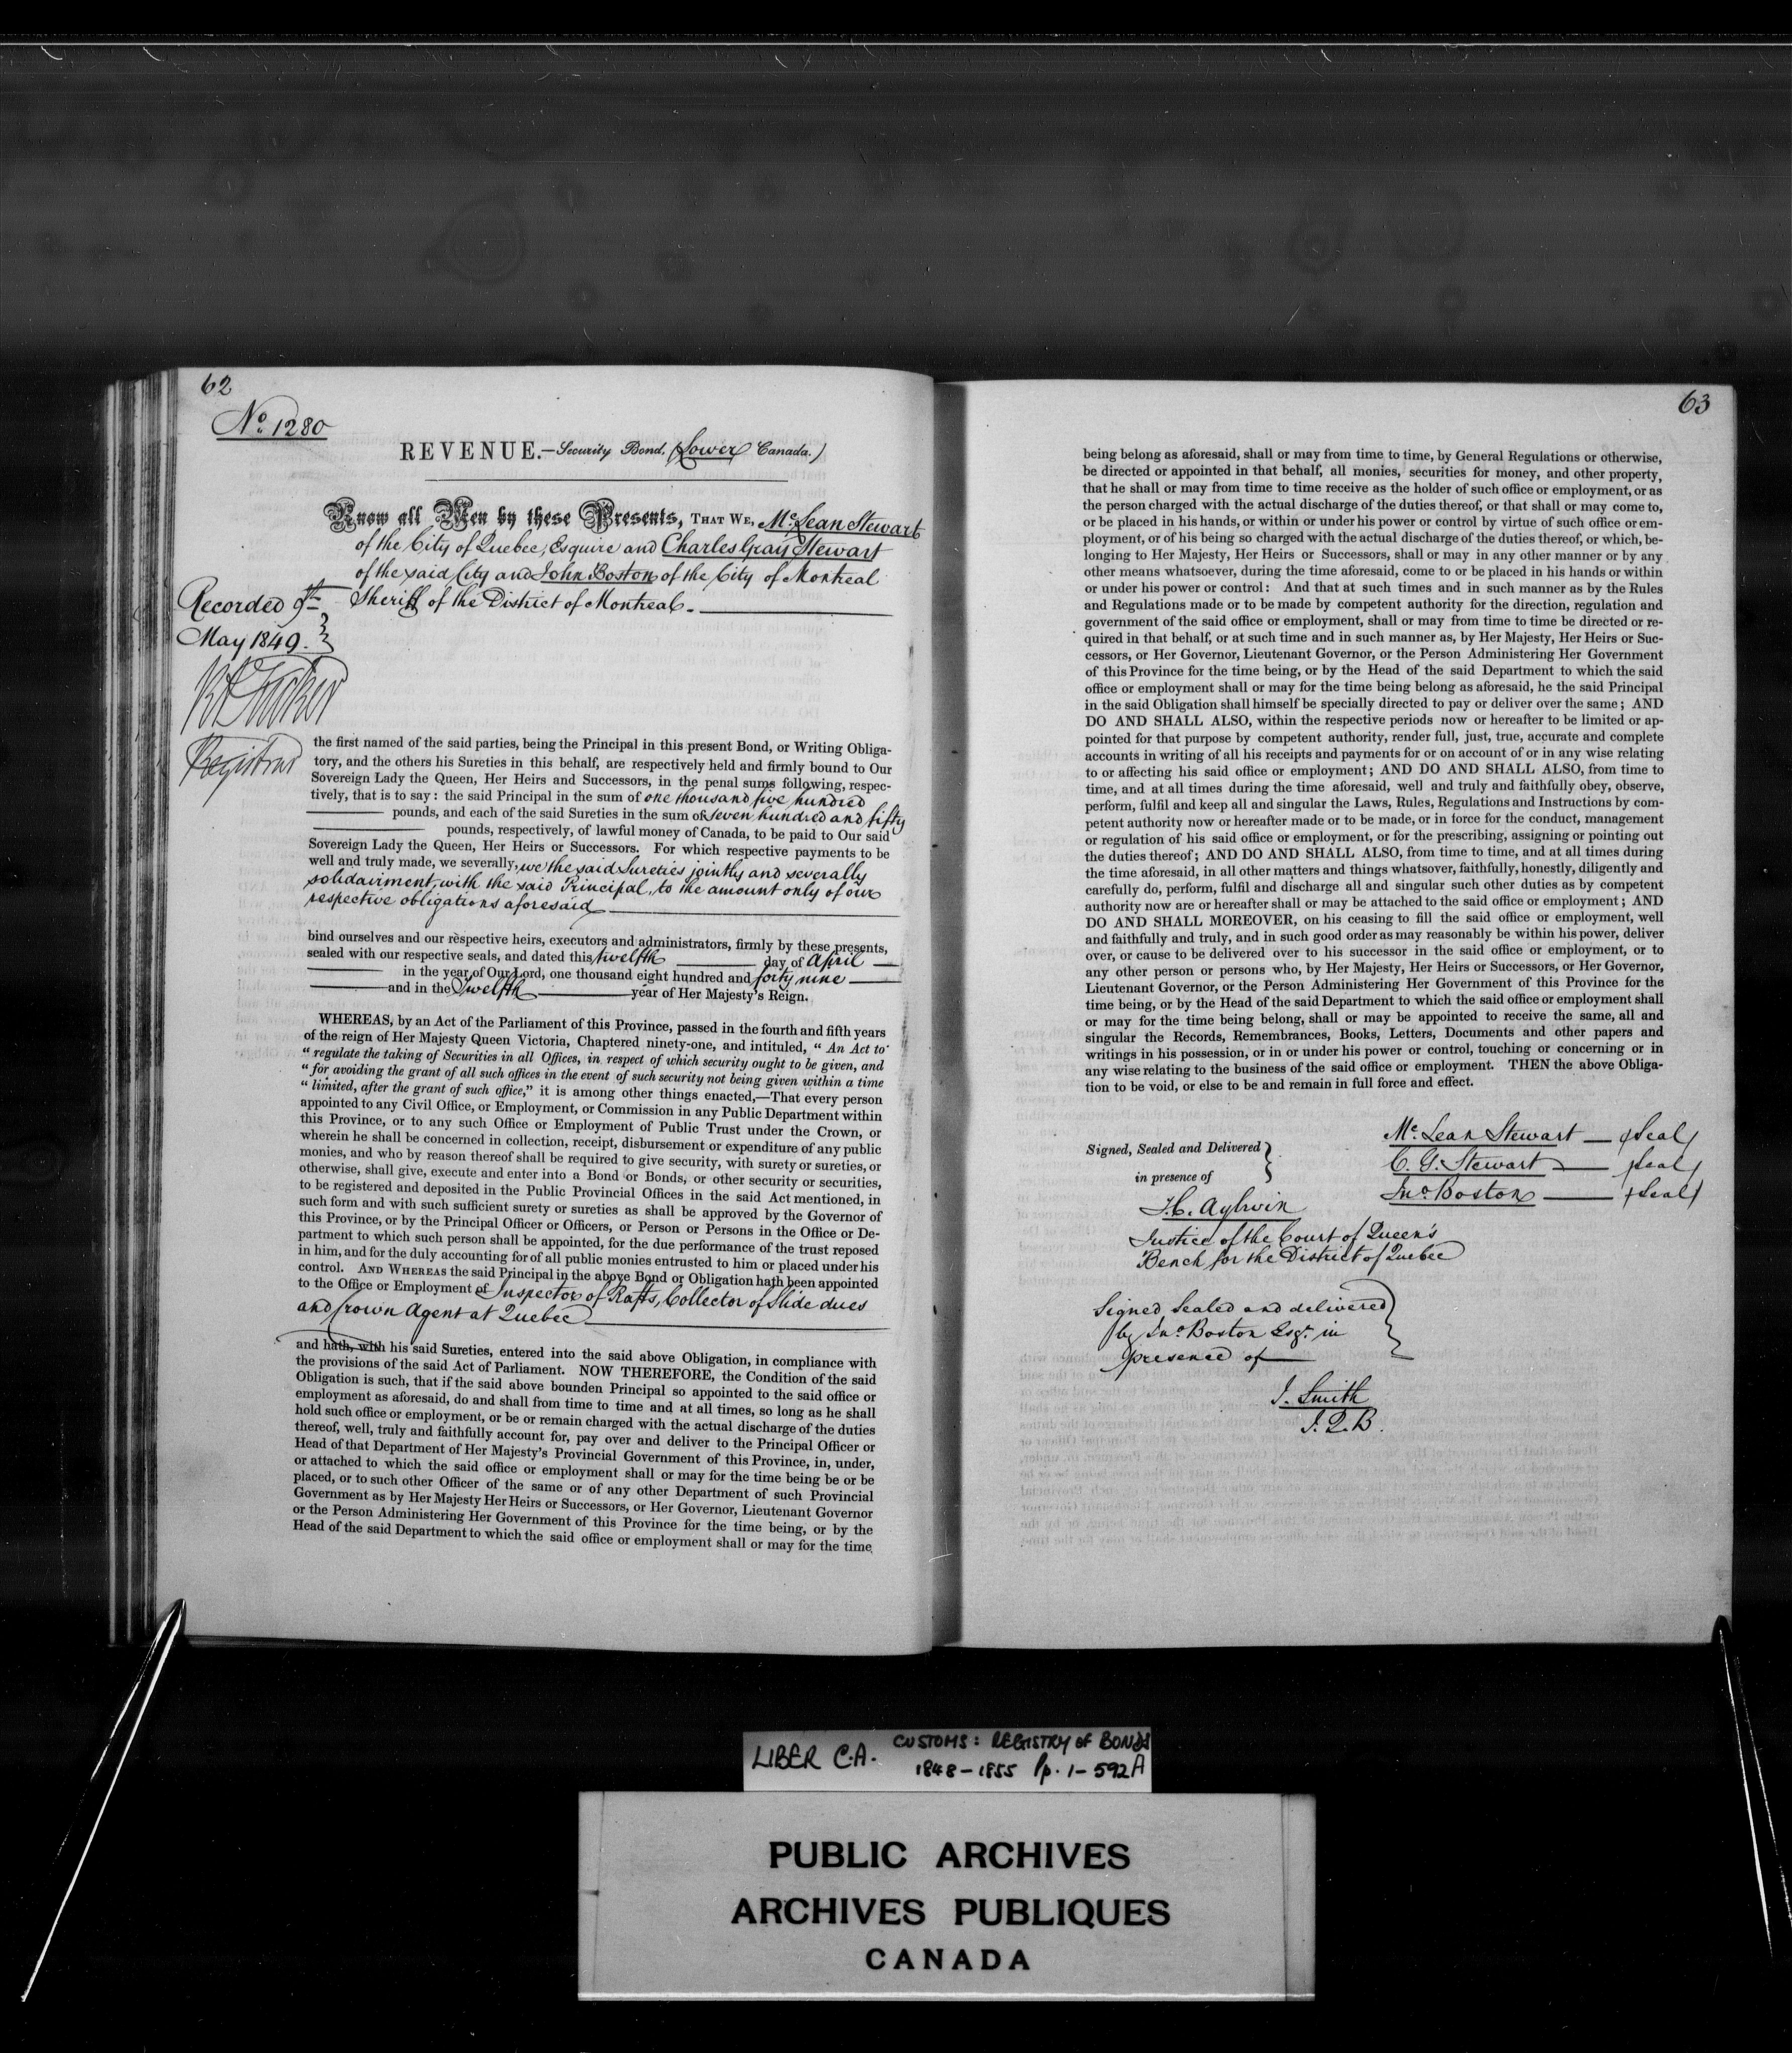 62
No. 1280
REVENUE.—Security Bond, (Lower Canada.)
Know all Men by these Presents, THAT WE, McLean Stewart
of the City of Quebec, Esquire and Charles Gray Stewart
of the said City and John Boston of the City of Montreal
Sheriff of the District of Montreal.
Recorded 9th
May 1849.
Registrar
the first named of the said parties, being the Principal in this present Bond, or Writing Obliga-
tory, and the others his Sureties in this behalf, are respectively held and firmly bound to Our
Sovereign Lady the Queen, Her Heirs and Successors, in the penal sums following, respec-
tively, that is to say: the said Principal in the sum of one thousand five hundred
pounds, and each of the said Sureties in the sum of seven hundred and fifty
pounds, respectively, of lawful money of Canada, to be paid to Our said
Sovereign Lady the Queen, Her Heirs or Successors. For which respective payments to be
well and truly made, we severally, we the said Sureties jointly and severally
solidairment, with the said Principal, to the amount only of our
respective obligations aforesaid
bind ourselves and our respective heirs, executors and administrators, firmly by these presents,
sealed with our respective seals, and dated this twelfth day of April
in the year of Our Lord, one thousand eight hundred and forty nine
and in the Twelfth year of Her Majesty's Reign.
WHEREAS, by an Act of the Parliament of this Province, passed in the fourth and fifth years
of the reign of Her Majesty Queen Victoria, Chaptered ninety-one, and intituled, “ An Act to
“ regulate the taking of Securities in all Offices, in respect of which security ought to be given, and
“ for avoiding the grant of all such offices in the event of such security not being given within a time
“ limited, after the grant of such office,” it is among other things enacted,—That every person
appointed to any Civil Office, or Employment, or Commission in any Public Department within
this Province, or to any such Office or Employment of Public Trust under the Crown, or
wherein he shall be concerned in collection, receipt, disbursement or expenditure of any public
monies, and who by reason thereof shall be required to give security, with surety or sureties, or
otherwise, shall give, execute and enter into a Bond or Bonds, or other security or securities,
to be registered and deposited in the Public Provincial Offices in the said Act mentioned, in
such form and with such sufficient surety or sureties as shall be approved by the Governor of
this Province, or by the Principal Officer or Officers, or Person or Persons in the Office or De-
partment to which such person shall be appointed, for the due performance of the trust reposed
in him, and for the duly accounting for of all public monies entrusted to him or placed under his
control. AND WHEREAS the said Principal in the above Bond or Obligation hath been appointed
to the Office or Employment of Inspector of Rafts, Collector of Slide dues
and Crown Agent at Quebec
and hath, with his said Sureties, entered into the said above Obligation, in compliance with
the provisions of the said Act of Parliament. NOW THEREFORE, the Condition of the said
Obligation is such, that if the said above bounden Principal so appointed to the said office or
employment as aforesaid, do and shall from time to time and at all times, so long as he shall
hold such office or employment, or be or remain charged with the actual discharge of the duties
thereof, well, truly and faithfully account for, pay over and deliver to the Principal Officer or
Head of that Department of Her Majesty's Provincial Government of this Province, in, under,
or attached to which the said office or employment shall or may for the time being be or be
placed, or to such other Officer of the same or of any other Department of such Provincial
Government as by Her Majesty Her Heirs or Successors, or Her Governor, Lieutenant Governor
or the Person Administering Her Government of this Province for the time being, or by the
Head of the said Department to which the said office or employment shall or may for the time
63
being belong as aforesaid, shall or may from time to time, by General Regulations or otherwise,
be directed or appointed in that behalf, all monies, securities for money, and other property,
that he shall or may from time to time receive as the holder of such office or employment, or as
the person charged with the actual discharge of the duties thereof, or that shall or may come to,
or be placed in his hands, or within or under his power or control by virtue of such office or em-
ployment, or of his being so charged with the actual discharge of the duties thereof, or which, be-
longing to Her Majesty, Her Heirs or Successors, shall or may in any other manner or by any
other means whatsoever, during the time aforesaid, come to or be placed in his hands or within
or under his power or control: And that at such times and in such manner as by the Rules
and Regulations made or to be made by competent authority for the direction, regulation and
government of the said office or employment, shall or may from time to time be directed or re-
quired in that behalf, or at such time and in such manner as, by Her Majesty, Her Heirs or Suc-
cessors, or Her Governor, Lieutenant Governor, or the Person Administering Her Government
of this Province for the time being, or by the Head of the said Department to which the said
office or employment shall or may for the time being belong as aforesaid, he the said Principal
in the said Obligation shall himself be specially directed to pay or deliver over the same; AND
DO AND SHALL ALSO, within the respective periods now or hereafter to be limited or ap-
pointed for that purpose by competent authority, render full, just, true, accurate and complete
accounts in writing of all his receipts and payments for or on account of or in any wise relating
to or affecting his said office or employment; AND DO AND SHALL ALSO, from time to
time, and at all times during the time aforesaid, well and truly and faithfully obey, observe,
perform, fulfil and keep all and singular the Laws, Rules, Regulations and Instructions by com-
petent authority now or hereafter made or to be made, or in force for the conduct, management
or regulation of his said office or employment, or for the prescribing, assigning or pointing out
the duties thereof; AND DO AND SHALL ALSO, from time to time, and at all times during
the time aforesaid, in all other matters and things whatsover, faithfully, honestly, diligently and
carefully do, perform, fulfil and discharge all and singular such other duties as by competent
authority now are or hereafter shall or may be attached to the said office or employment; AND
DO AND SHALL MOREOVER, on his ceasing to fill the said office or employment, well
and faithfully and truly, and in such good order as may reasonably be within his power, deliver
over, or cause to be delivered over to his successor in the said office or employment, or to
any other person or persons who, by Her Majesty, Her Heirs or Successors, or Her Governor,
Lieutenant Governor, or the Person Administering Her Government of this Province for the
time being, or by the Head of the said Department to which the said office or employment shall
or may for the time being belong, shall or may be appointed to receive the same, all and
singular the Records, Remembrances, Books, Letters, Documents and other papers and
writings in his possession, or in or under his power or control, touching or concerning or in
any wise relating to the business of the said office or employment. THEN the above Obliga-
tion to be void, or else to be and remain in full force and effect.
Signed, Sealed and Delivered
in presence of
McLean Stewart — (Seal)
C. G. Stewart — (Seal)
Jno. Boston — (Seal)
T.C. Aylwin
Justice of the Court of Queen's
Bench for the District of Quebec
Signed Sealed and delivered
by Jno. Boston Esqr. in
presence of
J. Smith
J.Q.B.
LIBER C.A. CUSTOMS: REGISTRY OF BONDS
1848–1855 Pp. 1–592A
PUBLIC ARCHIVES
ARCHIVES PUBLIQUES
CANADA